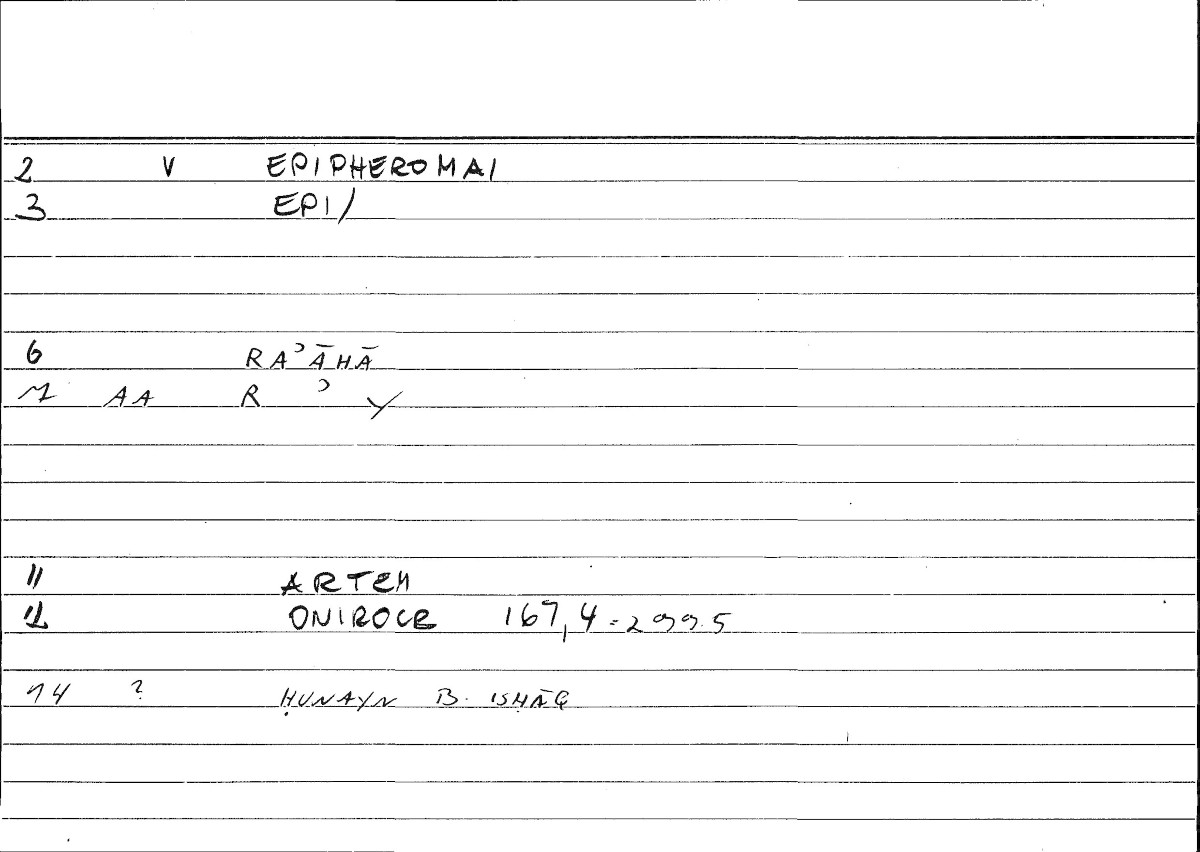 2 V EPIPHEROMAI
3 EPI/
6 RAʾĀHĀ
7 AA R ʾ Y
11 ARTEM
12 ONIROCR 167,4 = 299.5
14 ? ḤUNAYN B. ISḤĀQ